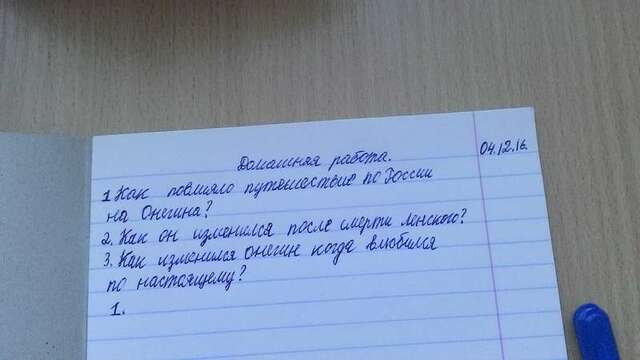 04.12.16.
Домашняя работа.
1 Как повлияло путешествие по России
на Онегина?
2. Как он изменился после смерти Ленского?
3. Как изменился Онегин когда влюбился
по настоящему?
1.